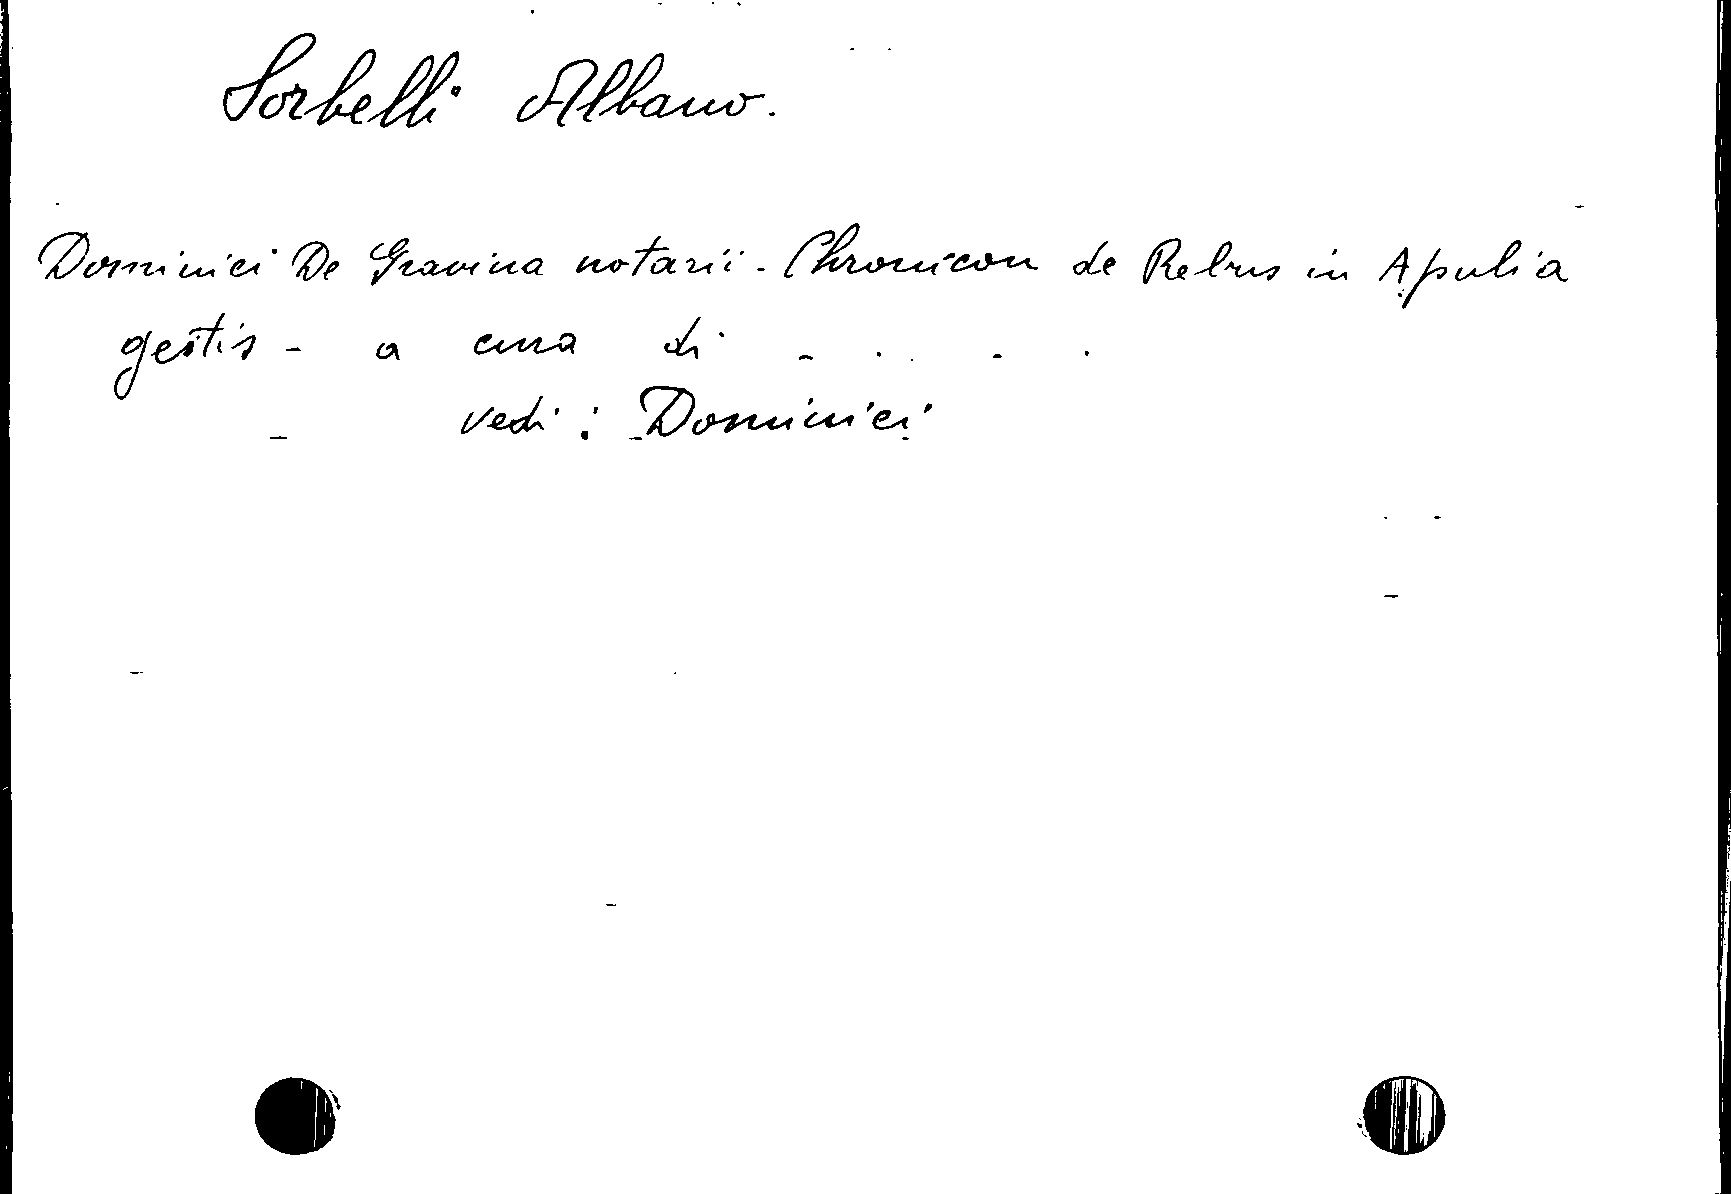 Sorbelli Albano.
Dominici De Gravina notarii - Chronicon de Rebus in Apulia
gestis - a cura di - . . - .
vedi : Dominici